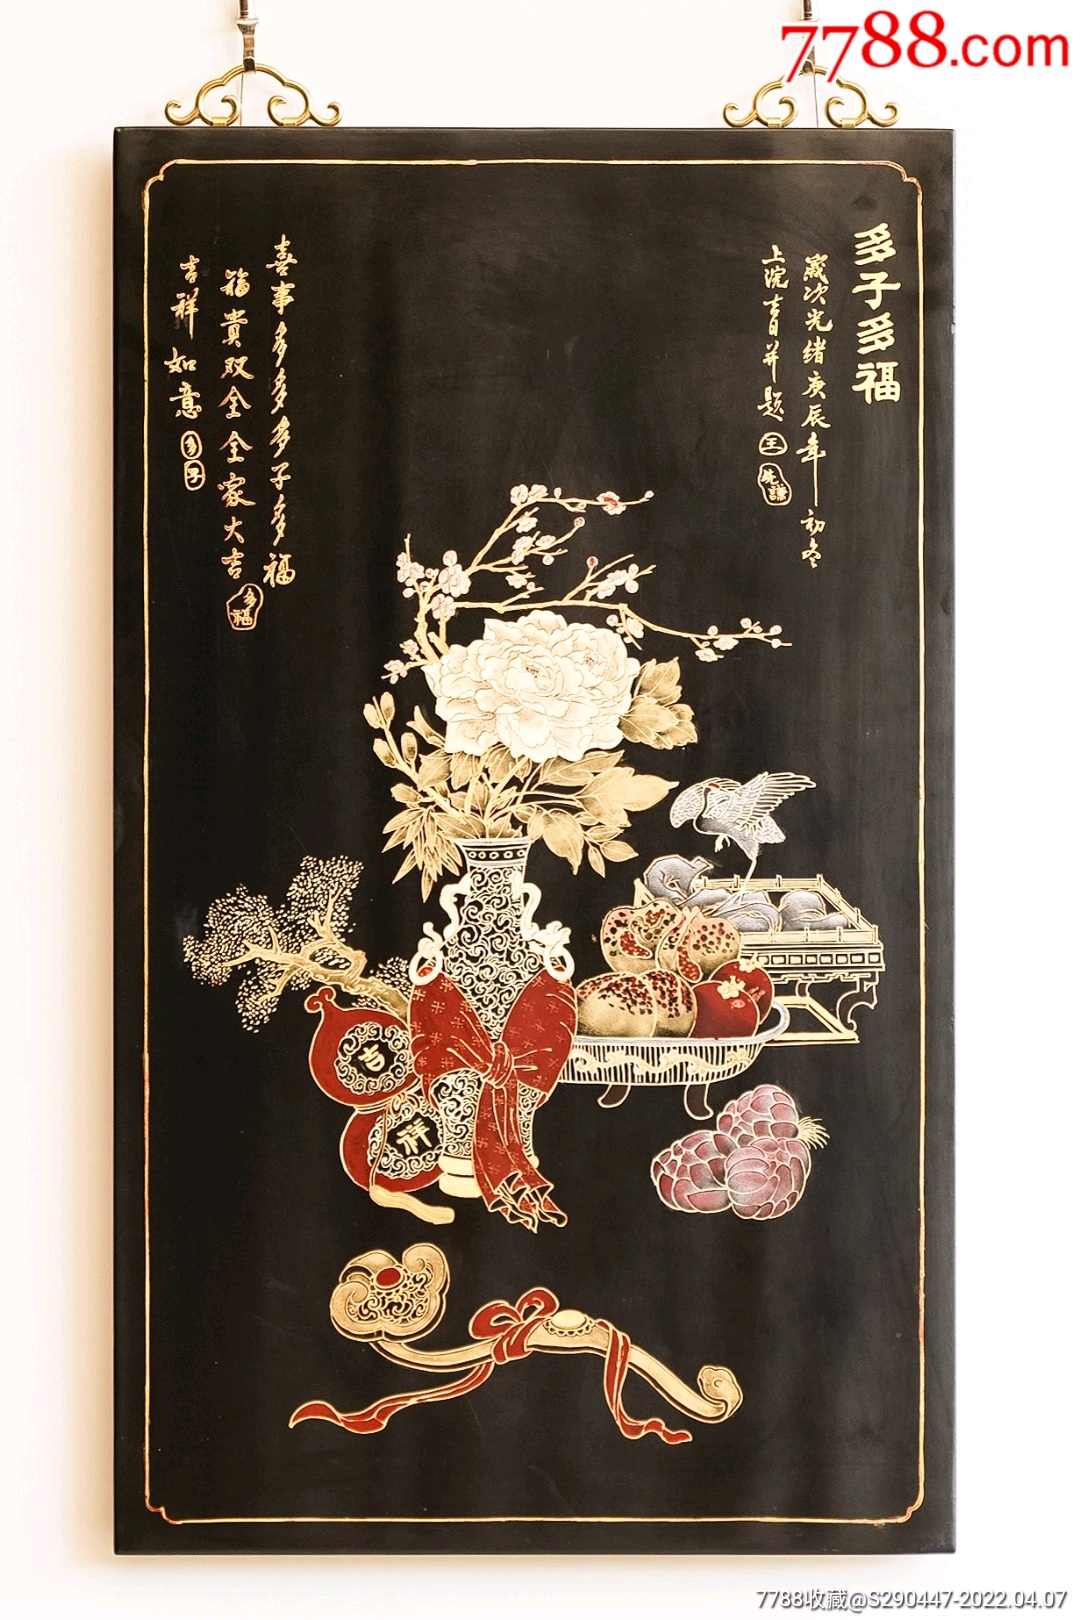 7788.com
多子多福
歲次光緒庚辰年初冬
上浣書并題
王
先謙
喜事多多多子多福
福貴双全全家大吉
多福
吉祥如意
多子
吉
祥
7788收藏@S290447-2022.04.07